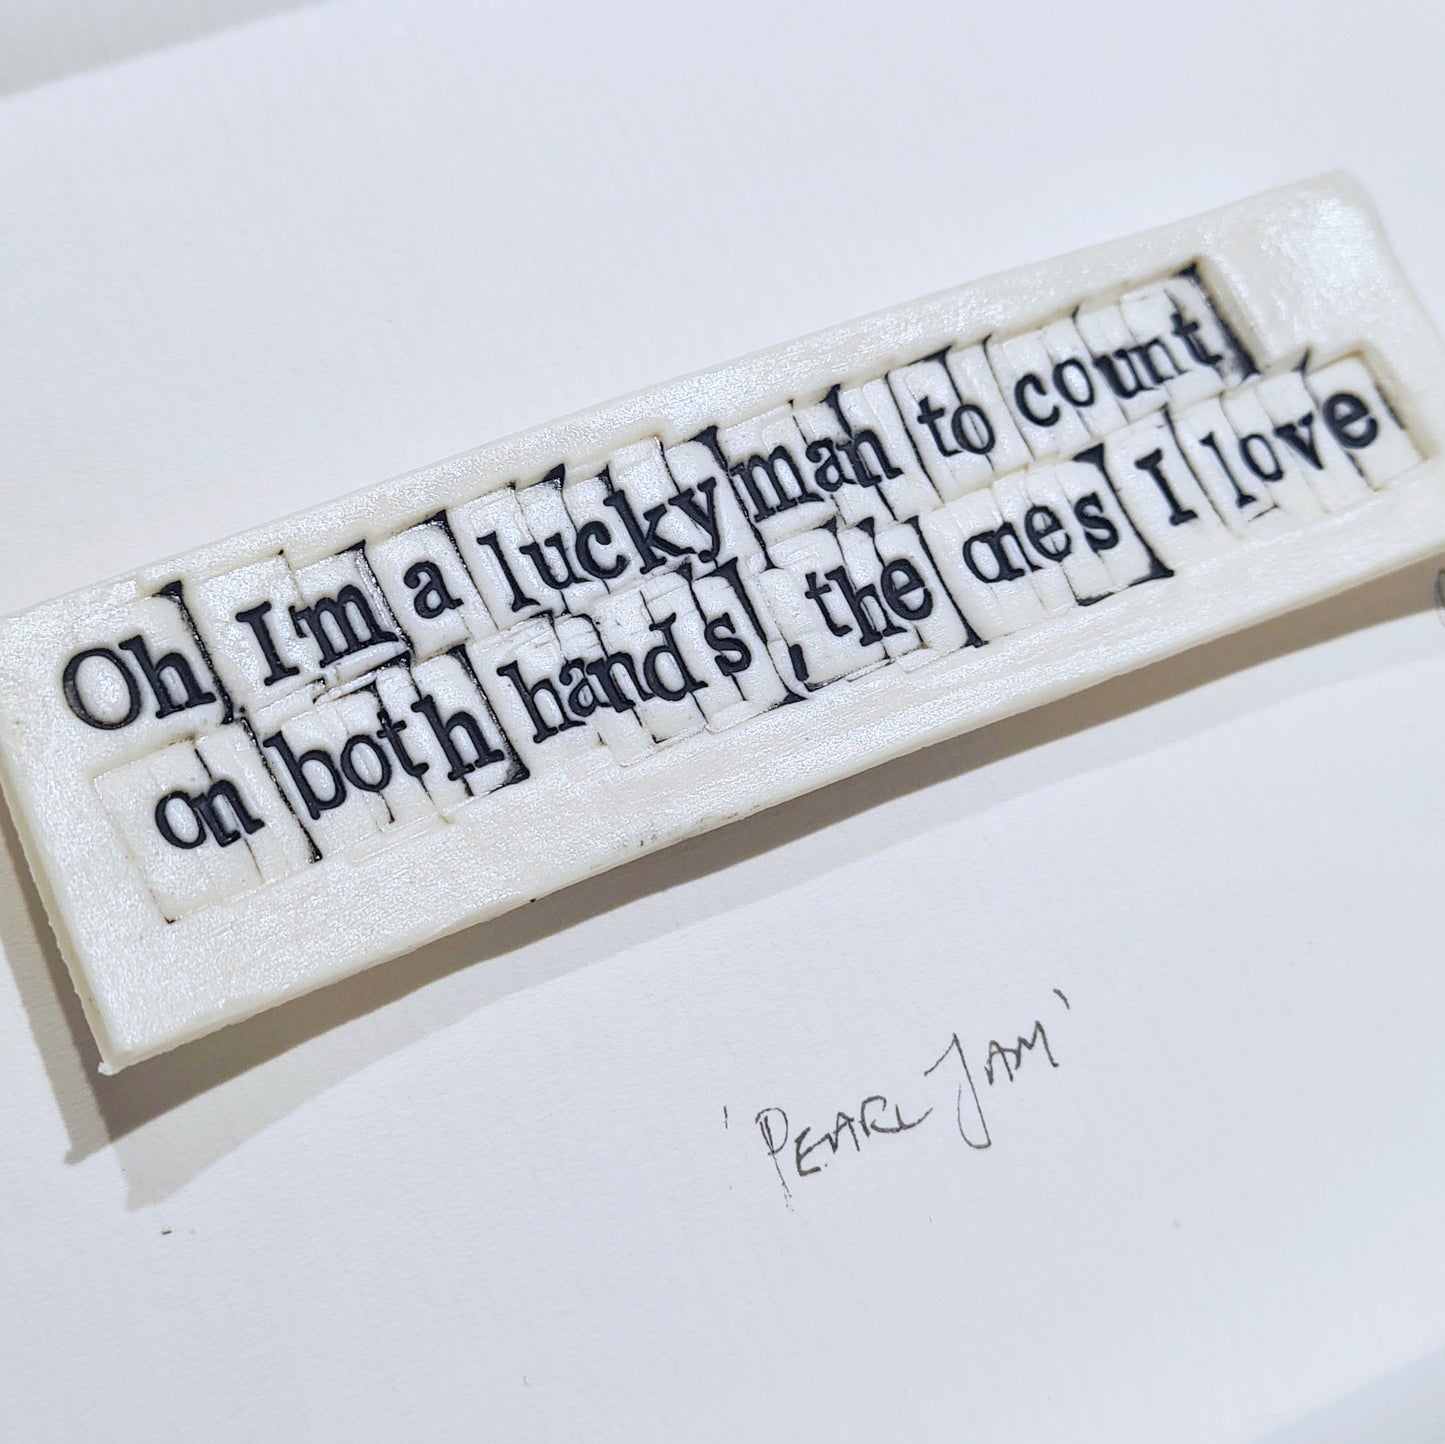 Oh I'm a lucky man to count
on both hands, the ones I love
'PEARL JAM'